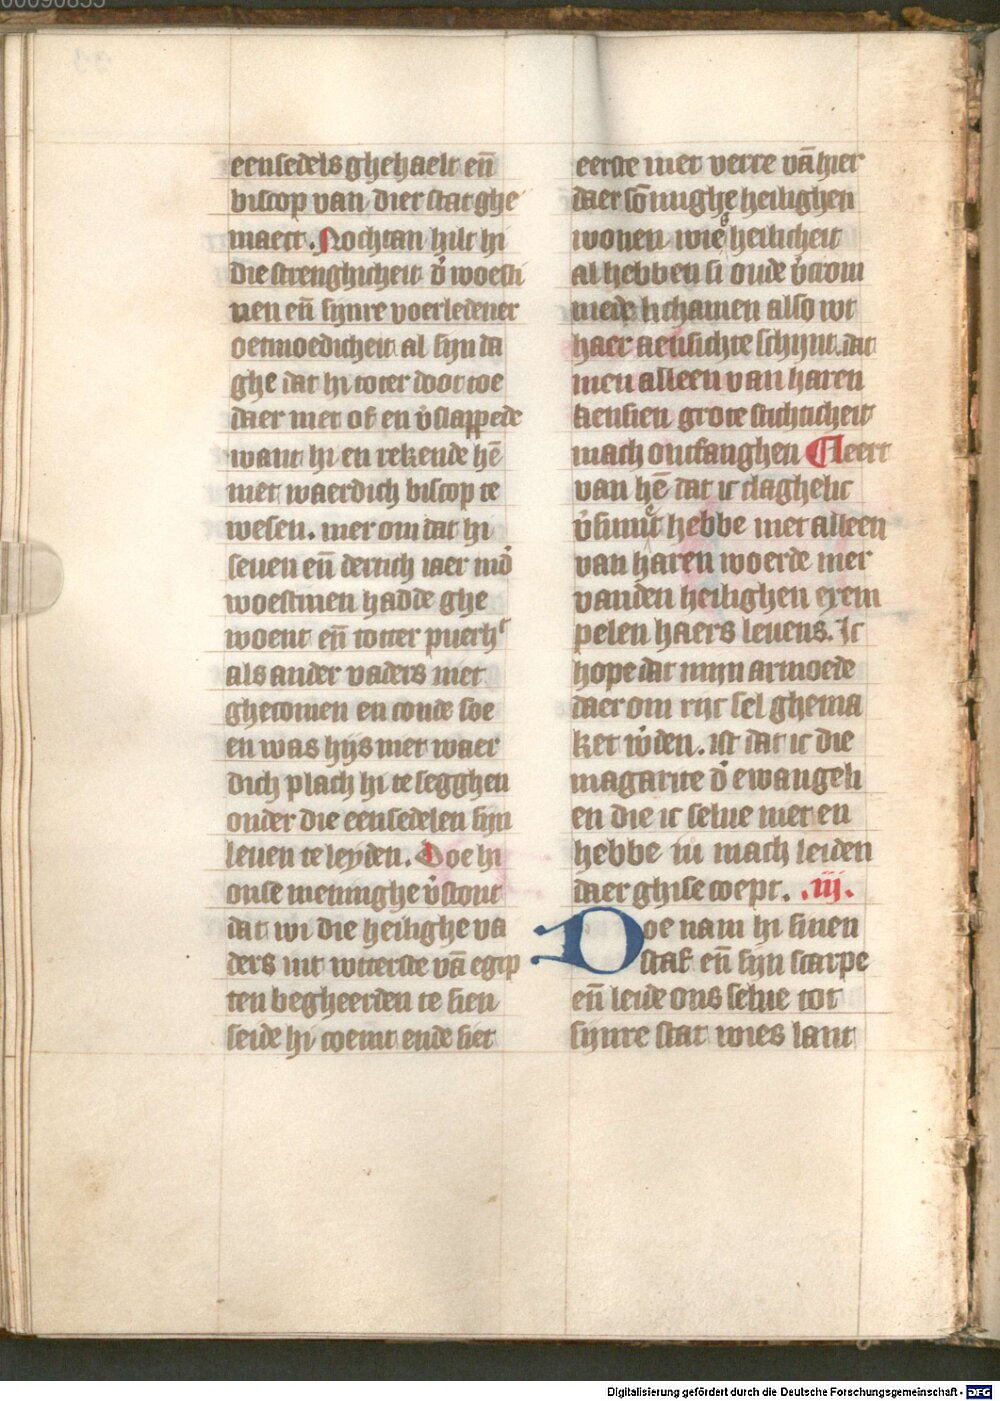 00090855
eensedels ghehaelt en̄
biscop van dier stat ghe
maect. Nochtan hilt hi
die strenghicheit d' woesti
nen en̄ sijnre voerledener
oetmoedicheit al sijn da
ghe dat hi toter doot toe
daer niet of en v'slappede
want hi en rekende hē
niet waerdich biscop te
wesen. mer om dat hi
seuen en̄ dertich iaer ind'
woestinen hadde ghe
woent en̄ totter puerht
als ander vaders niet
ghecomen en conde soe
en was hijs niet waer
dich plach hi te segghen
onder die eensedelen sijn
leuen te leyden. Doe hi
onse meninghe v'stont
dat wi die heilighe va
ders int wterste vā egip
ten begheerden te sien
seide hi coemt ende siet
eerste niet verre vā hier
daer sōmighe heilighen
wonen wies heilicheit
al hebben si oude v'crom
mede lichamen also wt
haer aensichte schijnt. dat
men alleen van haren
aensien grote stichticheit
mach ontfanghen Leert
van hē dat ic claghelic
v'sumet hebbe niet alleen
van haren woerde mer
vanden heilighen exem
pelen haers leuens. Ic
hope dat mijn armoede
daer om rijc sel ghema
ket w'den. ist dat ic die
magarite d' ewangeli
en die ic selue niet en
hebbe iu mach leiden
daer ghise coept. .iij.
Doe nam hi sinen
staf en̄ sijn scarpe
en̄ leide ons selue tot
sijnre stat wies lant
Digitalisierung gefördert durch die Deutsche Forschungsgemeinschaft - DFG